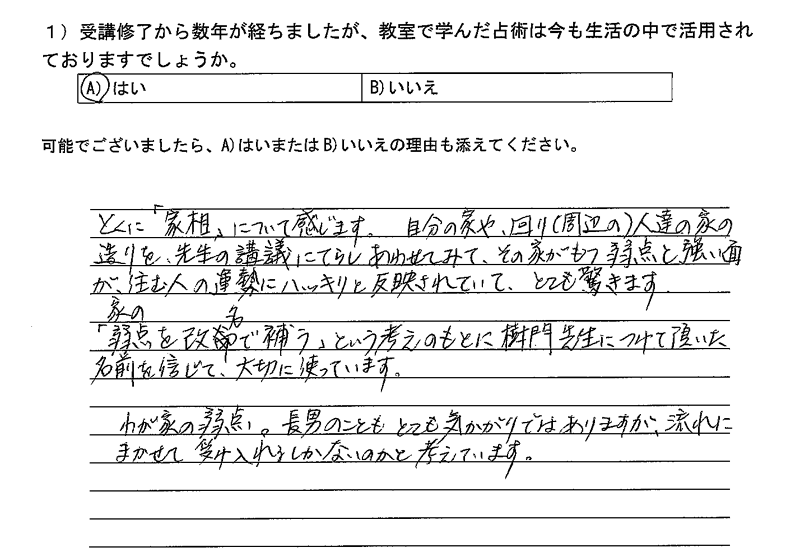 1）受講修了から数年が経ちましたが、教室で学んだ占術は今も生活の中で活用され
ておりますでしょうか。
A) はい B) いいえ
可能でございましたら、A)はいまたは B)いいえの理由も添えてください。
とくに「家相」について感じます。 自分の家や、回り(周辺の)人達の家の
造りを、先生の講義にてらしあわせてみて、その家がもつ弱点と強い面
が、住む人の運勢にハッキリと反映されていて、とても驚きます.
家の 名
「弱点を改命で補う」という考えのもとに樹門先生につけて頂いた
名前を信じて、大切に使っています。
わが家の弱点。長男のことも とても気がかりではありますが、流れに
まかせて 受け入れるしかないのかと 考えています。